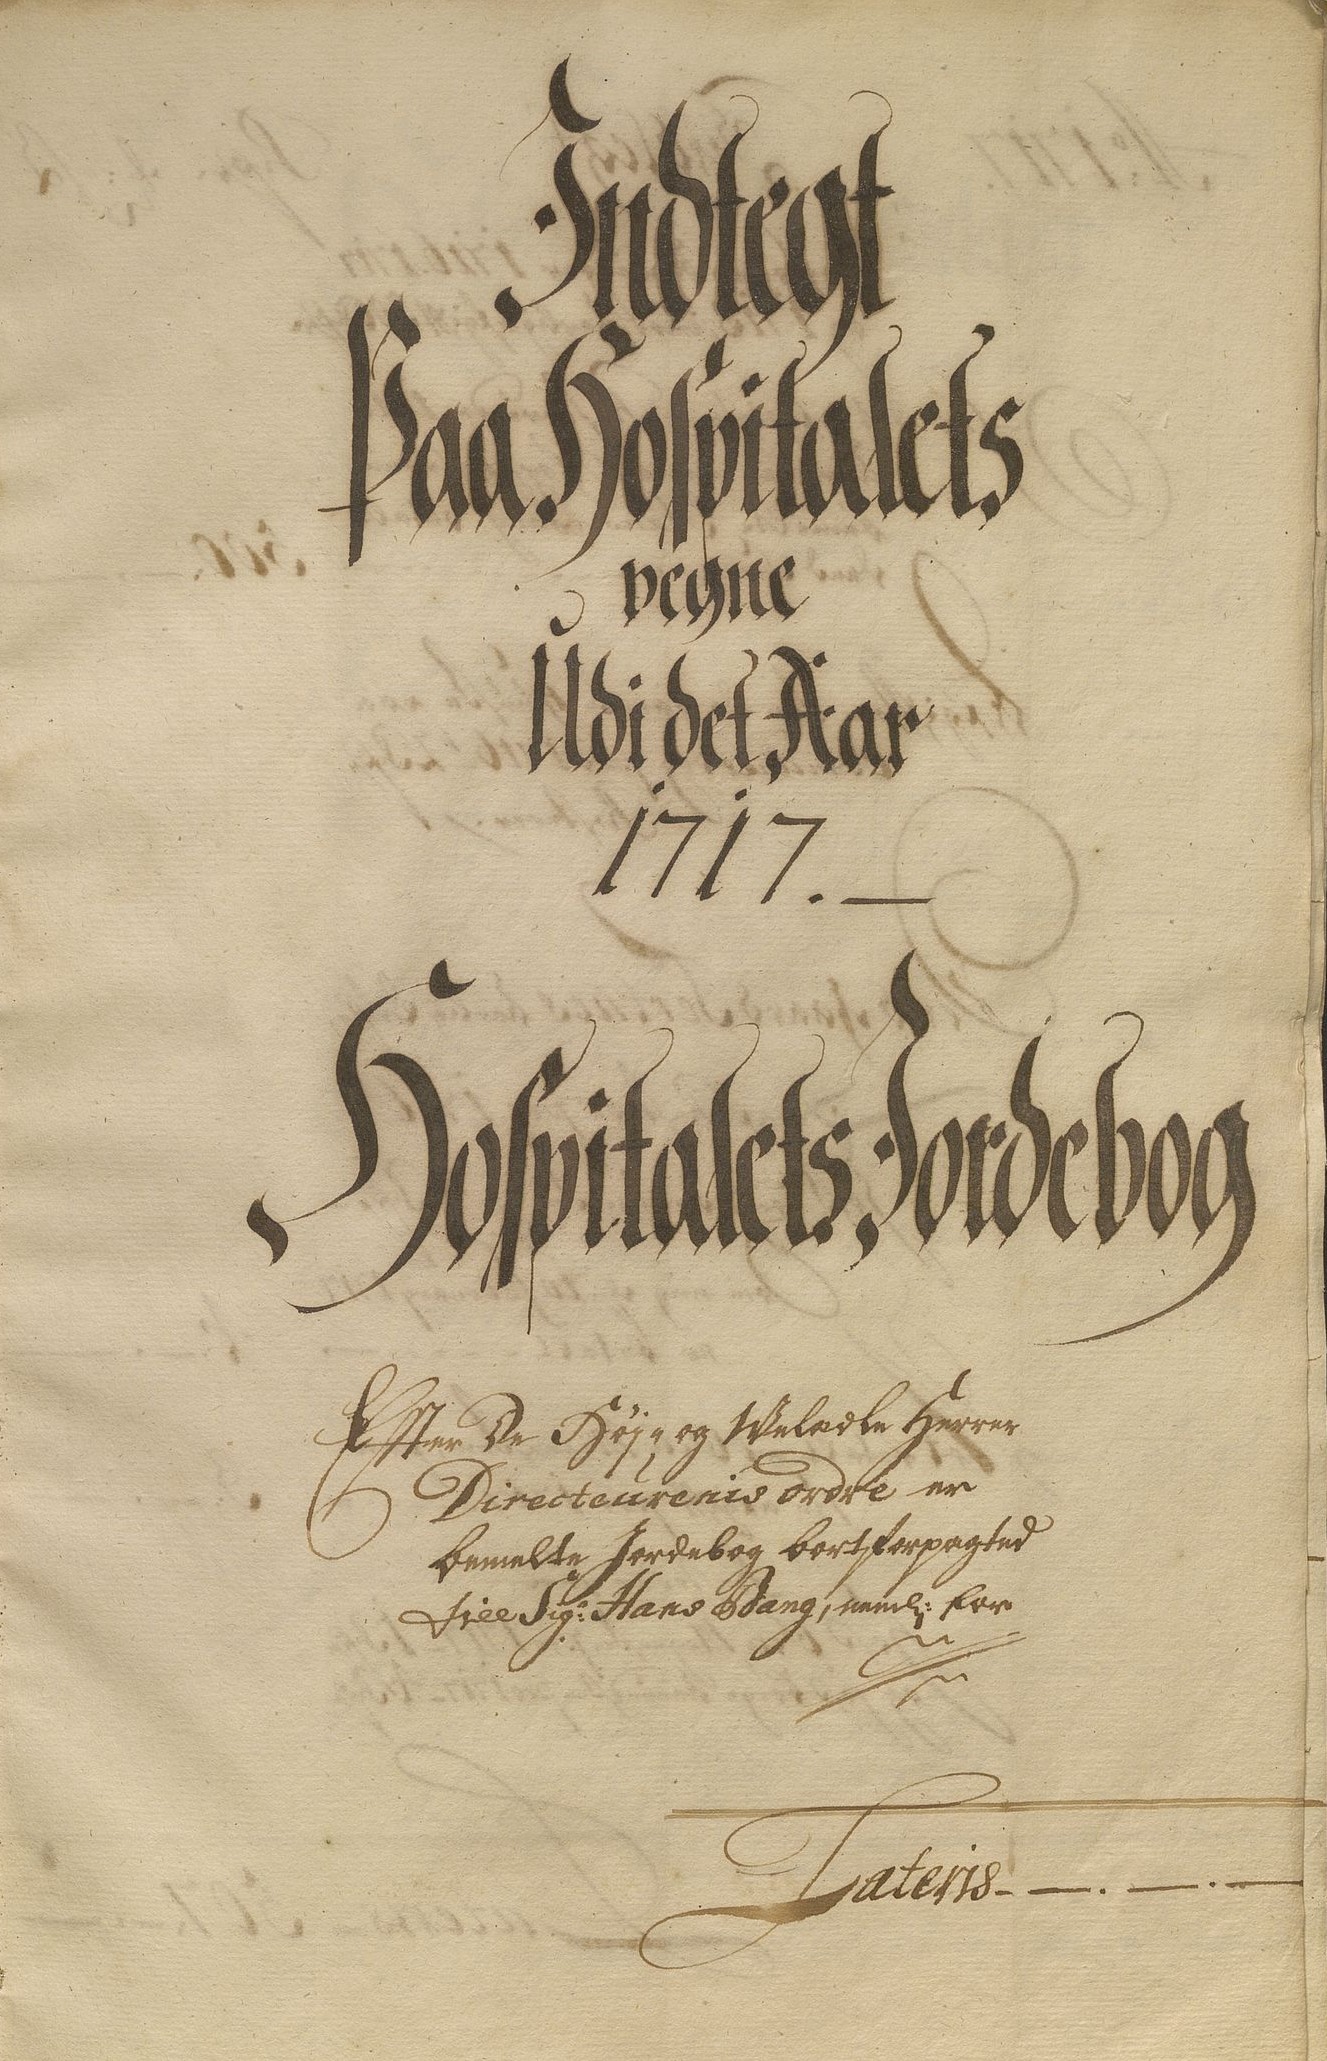 Indtegt
Paa Hospitalets
vegne
Udi det Aar
1717.
Hospitalets Jordebog
Efter De Høy- og Weledle Herrer
Directeurenis ordre er
bemelte Jordebog bortforpagted
till Sig: Hans Bang, neml: for
Lateris